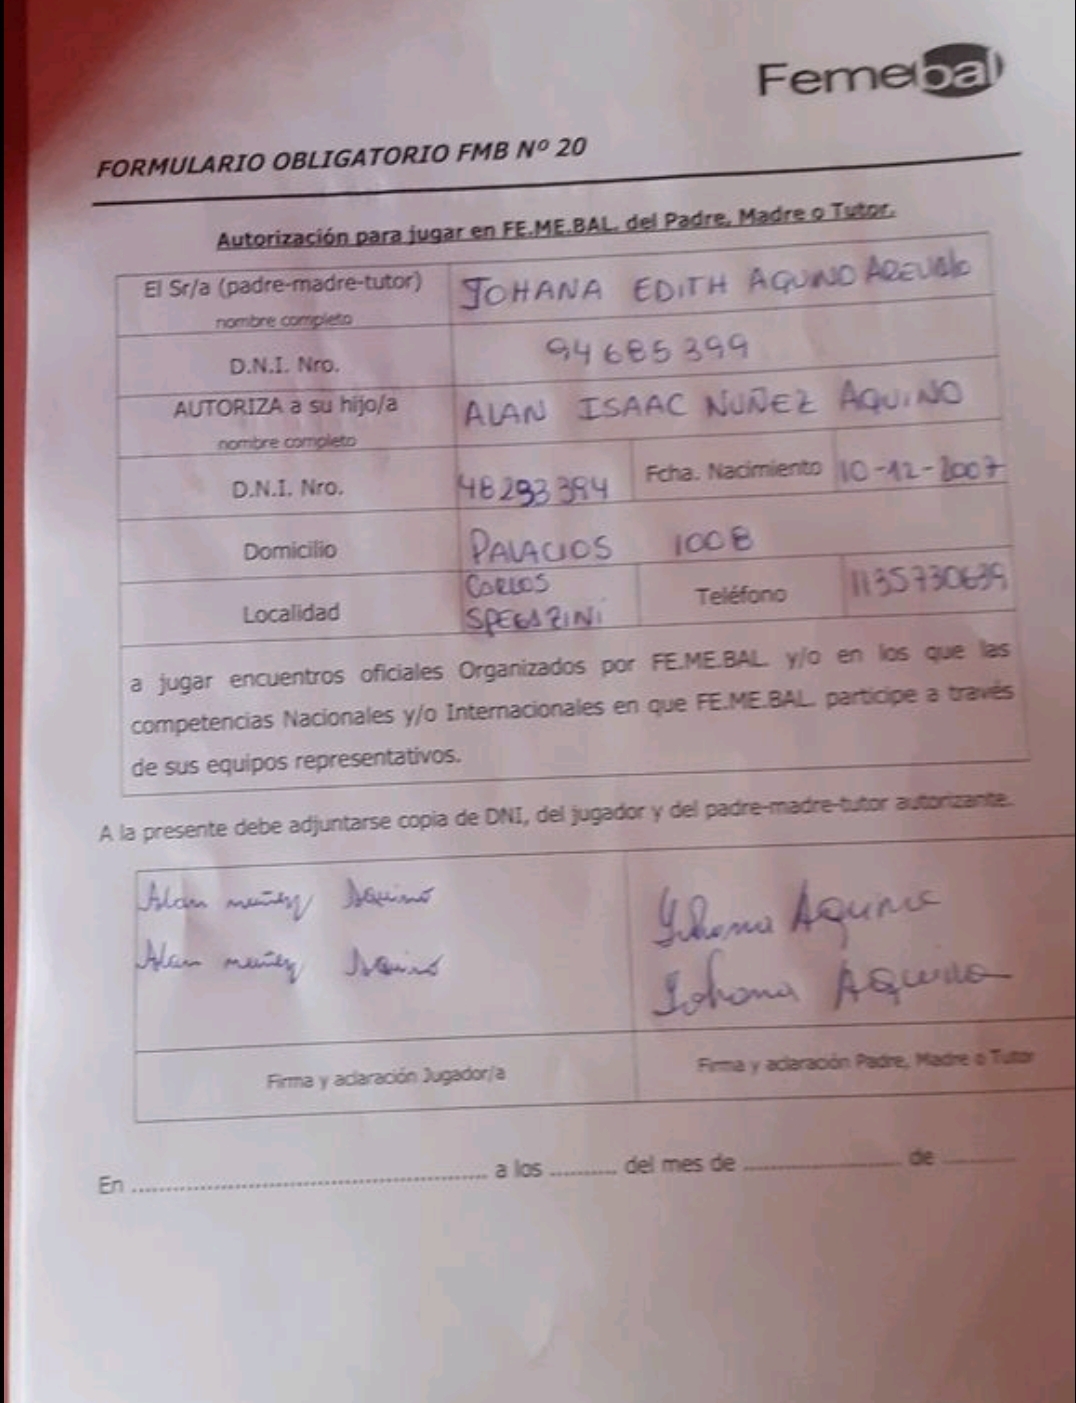 Femebal
FORMULARIO OBLIGATORIO FMB Nº 20
Autorización para jugar en FE.ME.BAL. del Padre, Madre o Tutor.
El Sr/a (padre-madre-tutor)
nombre completo
JOHANA EDITH AQUINO AREVALO
D.N.I. Nro.
94685399
AUTORIZA a su hijo/a
nombre completo
ALAN ISAAC NUÑEZ AQUINO
D.N.I. Nro.
48293394
Fcha. Nacimiento
10-12-2007
Domicilio
PALACIOS 1008
Localidad
CARLOS
SPEGAZINI
Teléfono
1135730639
a jugar encuentros oficiales Organizados por FE.ME.BAL. y/o en los que las
competencias Nacionales y/o Internacionales en que FE.ME.BAL. participe a través
de sus equipos representativos.
A la presente debe adjuntarse copia de DNI, del jugador y del padre-madre-tutor autorizante.
Alan nuñez Aquino
Alan nuñez Aquino
Johana Aquino
Johana Aquino
Firma y aclaración Jugador/a
Firma y aclaración Padre, Madre o Tutor
En ........................................ a los .......... del mes de ........................ de ...........